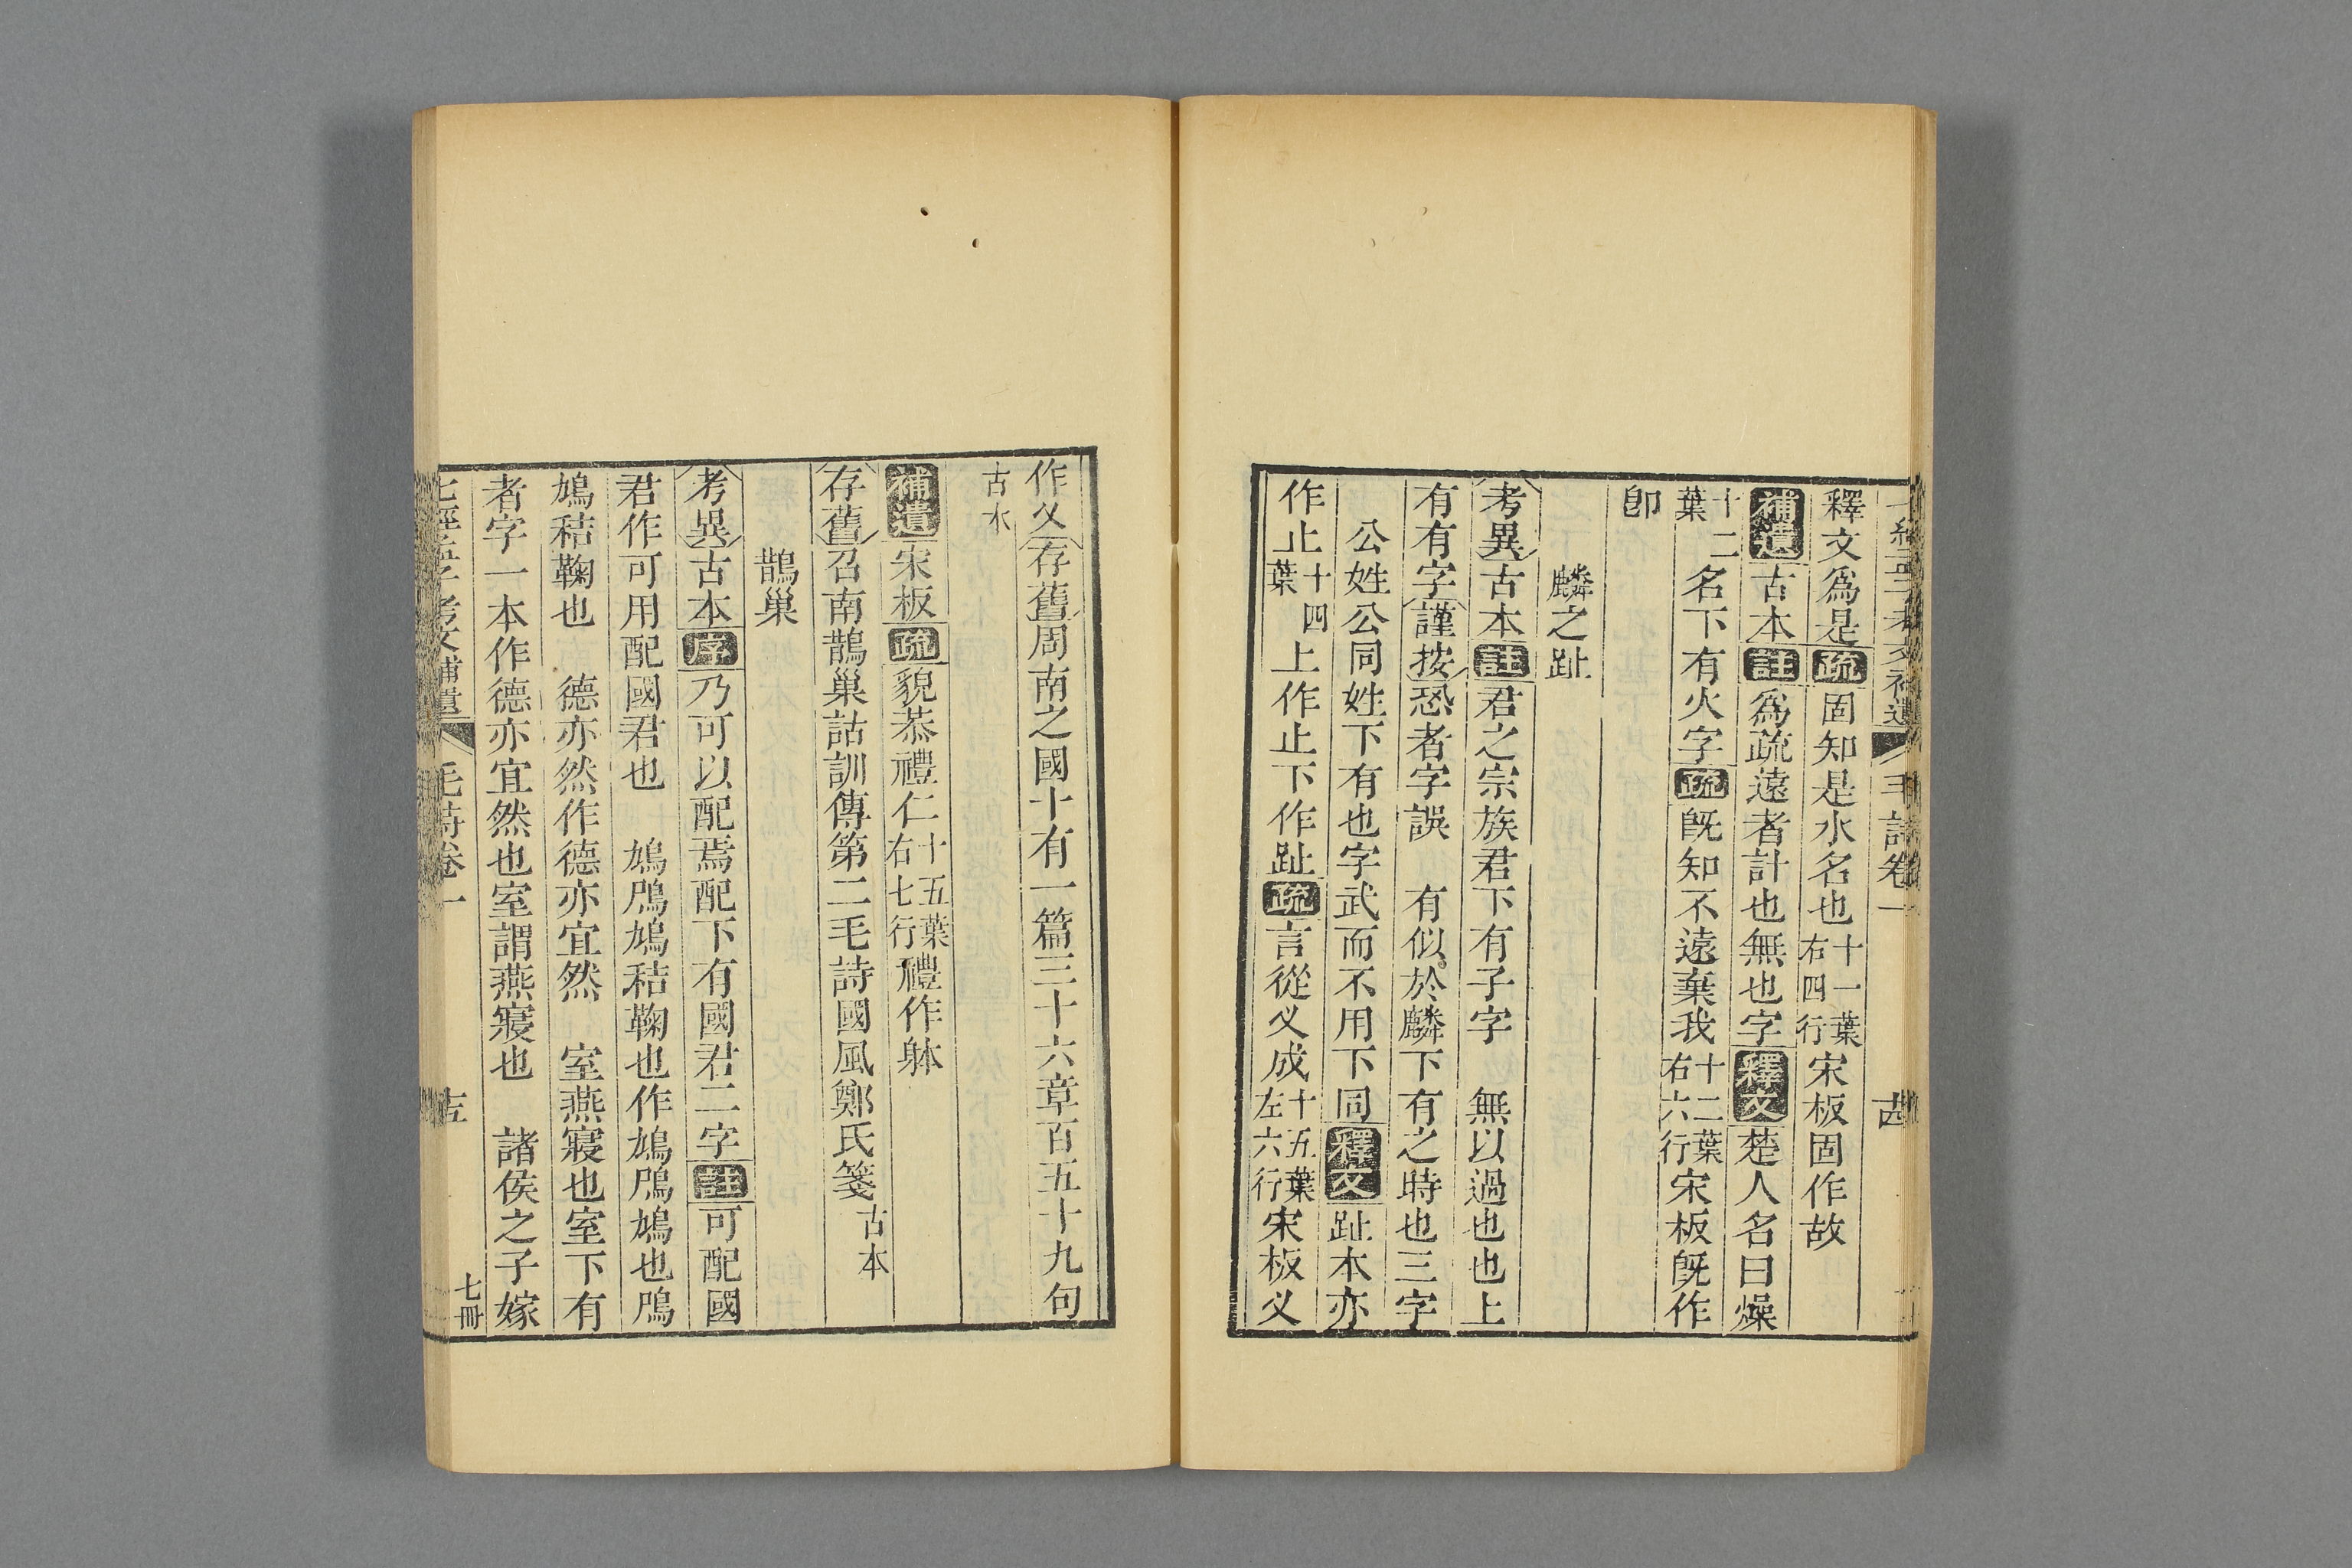 七經孟子考文補遺 毛詩卷一 十四
釋文爲是疏固知是水名也十一葉右四行宋板固作故
補遺古本註爲疏遠者計也無也字釋文楚人名曰燥
十二葉名下有火字疏旣知不遠棄我十二葉右六行宋板旣作
卽
麟之趾
考異古本註君之宗族君下有子字 無以過也也上
有有字謹按恐者字誤 有似於麟下有之時也三字
公姓公同姓下有也字武而不用下同釋文趾本亦
作止十四葉上作止下作趾疏言從义成十五葉左六行宋板义
作父存舊周南之國十有一篇三十六章百五十九句
古本
補遺宋板疏貌恭禮仁十五葉右七行禮作躰
存舊召南鵲巢詁訓傳第二毛詩國風鄭氏箋古本
鵲巢
考異古本序乃可以配焉配下有國君二字註可配國
君作可用配國君也 鳩鳲鳩秸鞠也作鳩鳲鳩也鳲
鳩秸鞠也 德亦然作德亦宜然 室燕寢也室下有
者字一本作德亦宜然也室謂燕寢也 諸侯之子嫁
七經孟子考文補遺 毛詩卷一 十五 七冊